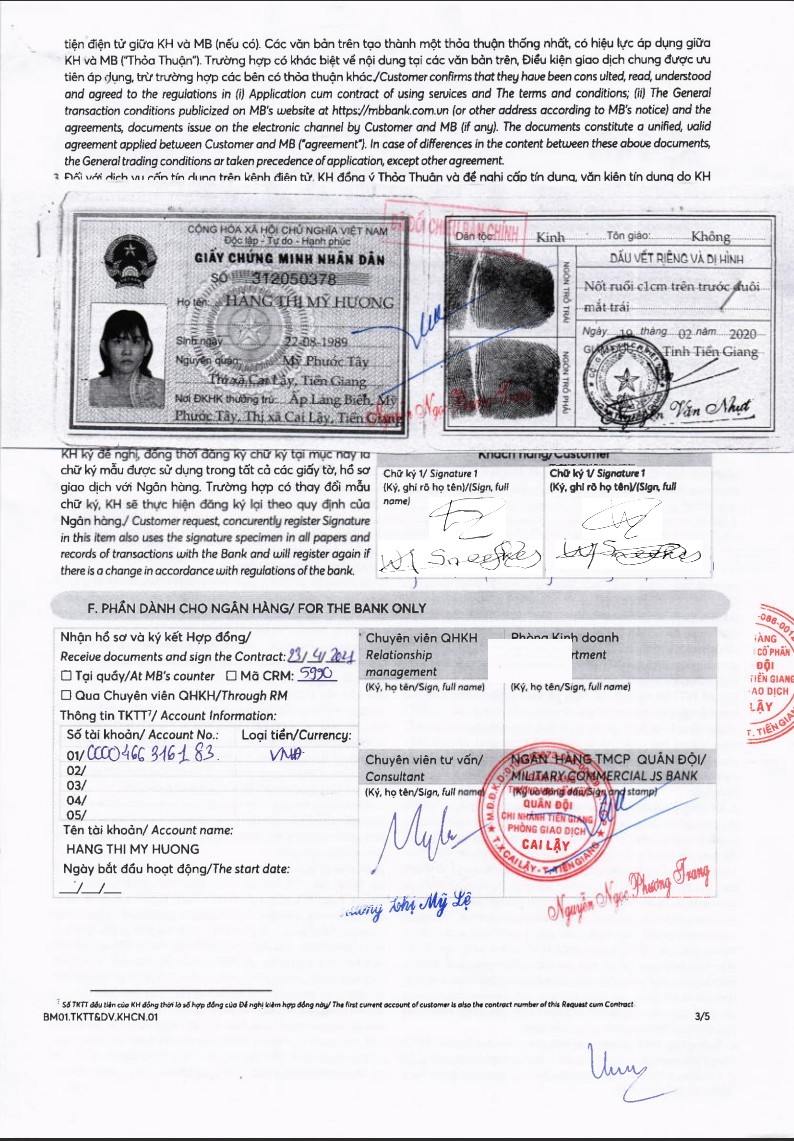 tiện điện tử giữa KH và MB (nếu có). Các văn bản trên tạo thành một thỏa thuận thống nhất, có hiệu lực áp dụng giữa
KH và MB ("Thỏa Thuận"). Trường hợp có khác biệt về nội dung tại các văn bản trên, Điều kiện giao dịch chung được ưu
tiên áp dụng, trừ trường hợp các bên có thỏa thuận khác./Customer confirms that they have been cons ulted, read, understood
and agreed to the regulations in (i) Application cum contract of using services and The terms and conditions; (ii) The General
transaction conditions publicized on MB's website at https://mbbank.com.vn (or other address according to MB's notice) and the
agreements, documents issue on the electronic channel by Customer and MB (if any). The documents constitute a unified, valid
agreement applied between Customer and MB ("agreement"). In case of differences in the content between these above documents,
the General trading conditions ar taken precedence of application, except other agreement.
3 Đối với dịch vụ cấp tín dụng trên kênh điện tử, KH đồng ý Thỏa Thuận và đề nghị cấp tín dụng, văn kiện tín dụng do KH
CỘNG HÒA XÃ HỘI CHỦ NGHĨA VIỆT NAM
Độc lập - Tự do - Hạnh phúc
GIẤY CHỨNG MINH NHÂN DÂN
SỐ 312050378
Họ tên: HANG THỊ MỸ HƯƠNG
Sinh ngày 22-08-1989
Nguyên quán Mỹ Phước Tây
Thị xã Cai Lậy, Tiền Giang
Nơi ĐKHK thường trú: Ấp Láng Biển, Mỹ
Phước Tây, Thị xã Cai Lậy, Tiền Giang
ĐÃ ĐỐI CHIẾU BẢN CHÍNH
Dân tộc: Kinh Tôn giáo: Không
NGÓN TRỎ TRÁI
NGÓN TRỎ PHẢI
DẤU VẾT RIÊNG VÀ DỊ HÌNH
Nốt ruồi c1cm trên trước đuôi
mắt trái
Ngày 19 tháng 02 năm 2020
Tỉnh Tiền Giang
Nguyễn Văn Nhựt
Nguyễn Ngọc Phương Trang
KH ký đề nghị, đồng thời đăng ký chữ ký tại mục này là
chữ ký mẫu được sử dụng trong tất cả các giấy tờ, hồ sơ
giao dịch với Ngân hàng. Trường hợp có thay đổi mẫu
chữ ký, KH sẽ thực hiện đăng ký lại theo quy định của
Ngân hàng./ Customer request, concurently register Signature
in this item also uses the signature specimen in all papers and
records of transactions with the Bank and will register again if
there is a change in accordance with regulations of the bank.
Khách hàng/Customer
Chữ ký 1/ Signature 1
(Ký, ghi rõ họ tên)/(Sign, full
name)
Chữ ký 1/ Signature 1
(Ký, ghi rõ họ tên)/(Sign, full name)
F. PHẦN DÀNH CHO NGÂN HÀNG/ FOR THE BANK ONLY
Nhận hồ sơ và ký kết Hợp đồng/
Receive documents and sign the Contract: 23/4/2021
☐ Tại quầy/At MB's counter ☐ Mã CRM: 5990
☐ Qua Chuyên viên QHKH/Through RM
Thông tin TKTT⁷/ Account Information:
Số tài khoản/ Account No.: Loại tiền/Currency:
01/ 0000466316183 VNĐ
02/
03/
04/
05/
Tên tài khoản/ Account name:
HANG THI MY HUONG
Ngày bắt đầu hoạt động/The start date:
__/__/__
Chuyên viên QHKH
Relationship
management
(Ký, họ tên/Sign, full name)
Phòng Kinh doanh
rtment
(Ký, họ tên/Sign, full name)
Chuyên viên tư vấn/
Consultant
(Ký, họ tên/Sign, full name)
NGÂN HÀNG TMCP QUÂN ĐỘI/
MILITARY COMMERCIAL JS BANK
(Ký và đóng dấu/Sign and stamp)
QUÂN ĐỘI
CHI NHÁNH TIỀN GIANG
PHÒNG GIAO DỊCH
CAI LẬY
T.X CAI LẬY - T. TIỀN GIANG
Thị Mỹ Lệ
Nguyễn Ngọc Phương Trang
HÀNG
CỔ PHẦN
ĐỘI
TIỀN GIANG
GIAO DỊCH
LẬY
T. TIỀN GIANG
⁷ Số TKTT đầu tiên của KH đồng thời là số hợp đồng của Đề nghị kiêm hợp đồng này/ The first current account of customer is also the contract number of this Request cum Contract.
BM01.TKTT&DV.KHCN.01 3/5